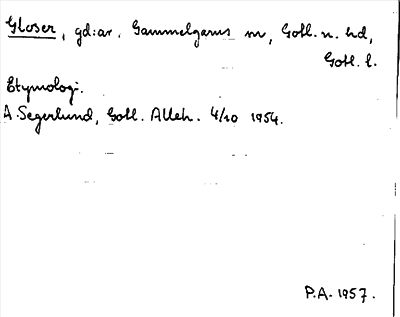 Gloser, gd:ar. Gammelgarns sn, Gotl. n. hd,
Gotl. l.
Etymologi.
A. Segerlund, Gotl. Alleh. 4/10 1954.
P.A. 1957.